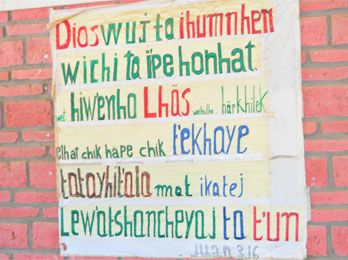 Dios wuj ta ihumnhen
wichi ta iipe honhat.
wet hiwenho Lhäs wethulha. här khilek
elhat chik hape chik t'ekhaye
tatayhit'ala mat ikatej
Lewatshancheyaj ta t'un
Juan 3.16